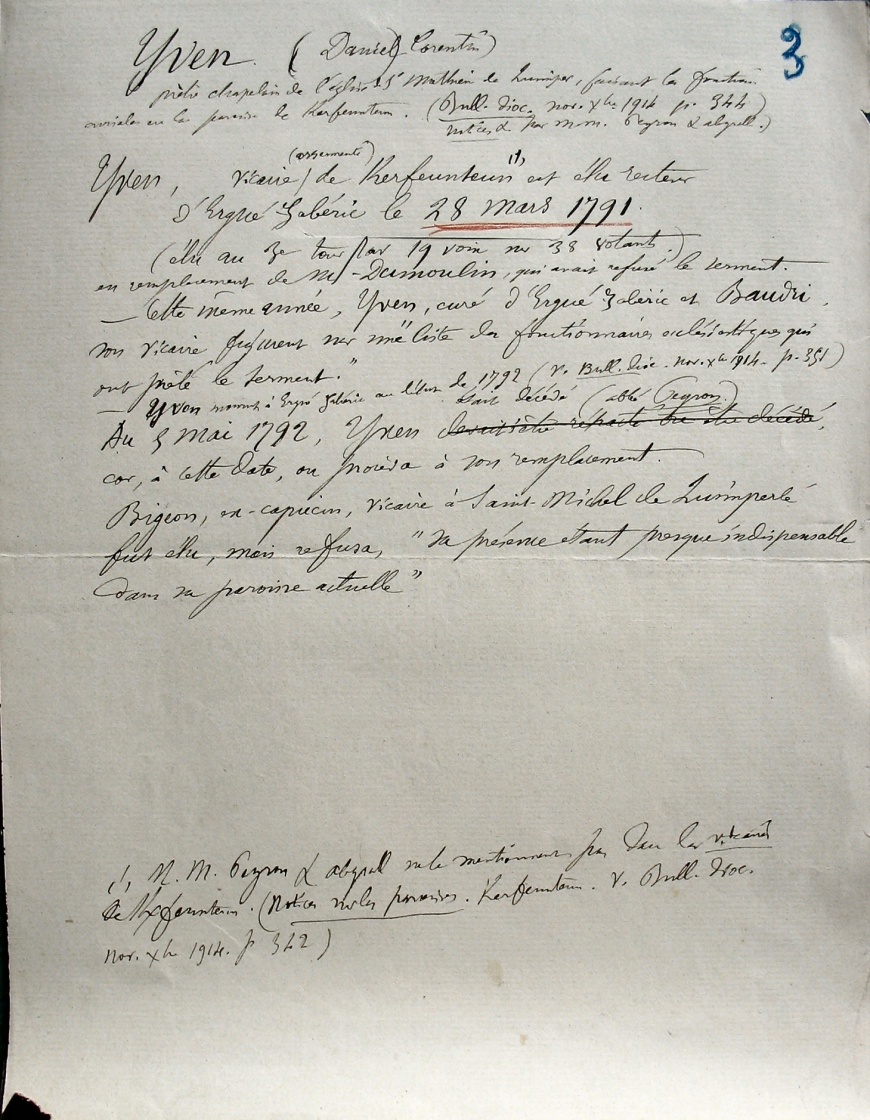 3
Yven. (Daniel) Corentin)
prêtre chapelain de l'église St Mathieu de Quimper, faisant les fonctions
curiales en la paroisse de Kerfeunteun. (Bull. dioc. nov. Xbre 1914 p. 344)
notices & par M.M. Peyron & abgrall.)
(assermenté)
Yven, vicaire / de Kerfeunteun (1) est élu recteur
d'Ergué Gabéric le 28 mars 1791.
(élu au 3e tour par 19 voix sur 38 votants.)
en remplacement de M. Dumoulin, qui avait refusé le serment.
— Cette même année, Yven, curé d'Ergué Gabéric et Baudri,
son vicaire, figurent sur une liste des fonctionnaires ecclésiastiques qui
ont prêté le serment." (v. Bull. dioc. nov. Xbre 1914 - p. 351)
— Yven mourut à Ergué Gabéric au début de 1792
était décédé (abbé Peyron.)
Au 5 mai 1792, Yven devait s'être rétracté ou être décédé,
car, à cette date, on procéda à son remplacement.
Bigeon, ex-capucin, vicaire à Saint-Michel de Quimperlé
fut élu, mais refusa, "sa présence étant presque indispensable
dans sa paroisse actuelle"
(1) M. M. Peyron & abgrall ne le mentionnent pas dans les vicaires
de Kerfeunteun. (Notices sur les paroisses. Kerfeunteun. v. Bull. dioc.
nov. Xbre 1914. p 342)